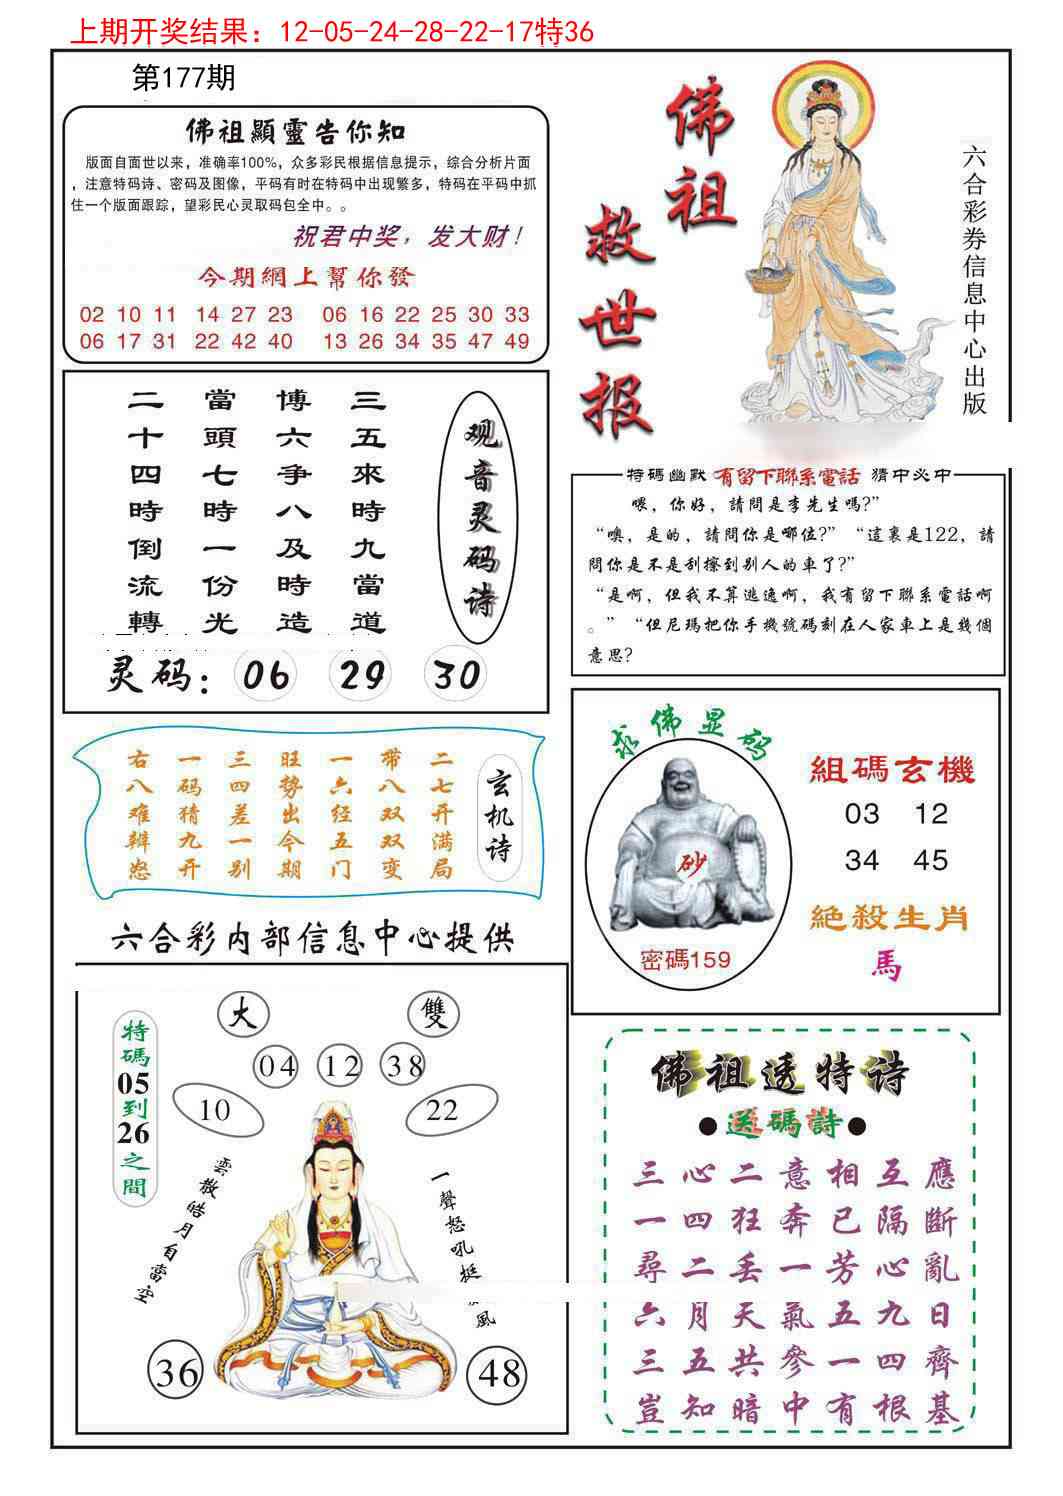 上期开奖结果：12-05-24-28-22-17特36
第177期
佛祖顯靈告你知
版面自面世以来，准确率100%，众多彩民根据信息提示，综合分析片面
，注意特码诗、密码及图像，平码有时在特码中出现繁多，特码在平码中抓
住一个版面跟踪，望彩民心灵取码包全中。。
祝君中奖，发大财！
今期網上幫你發
02 10 11 14 27 23 06 16 22 25 30 33
06 17 31 22 42 40 13 26 34 35 47 49
佛祖
救世报
六合彩券信息中心出版
观音灵码诗
三五來時九當道
博六爭八及時造
當頭七時一份光
二十四時倒流轉
灵码：06 29 30
特碼幽默 有留下聯系電話 猜中必中
喂，你好，請問是李先生嗎?”
“噢，是的，請問你是哪位?” “這裏是122，請
問你是不是刮擦到别人的車了?”
“是啊，但我不算逃逸啊，我有留下聯系電話啊
。” “但尼瑪把你手機號碼刻在人家車上是幾個
意思?
玄机诗
二七开满局
带八双双变
一六经五门
旺势出今期
三四差一别
一码猜九开
右八难辩愁
求佛显码
砂
密碼159
組碼玄機
03 12
34 45
絕殺生肖
馬
六合彩内部信息中心提供
特碼05到26之間
大 雙
04 12 38
10 22
雲散皓月自當空
一聲怒吼挺 風
36 48
佛祖透特诗
●送碼詩●
三心二意相互應
一四狂奔已隔斷
尋二丢一芳心亂
六月天氣五九日
三五共參一四齊
豈知暗中有根基